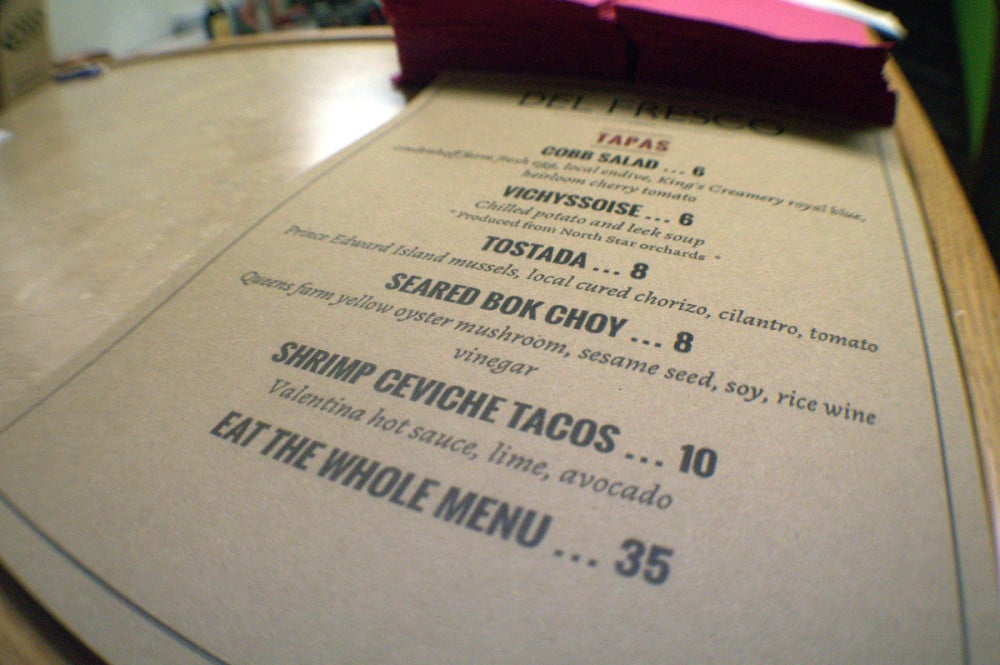 DEL FRESCO
TAPAS
COBB SALAD ... 6
farm fresh egg, local endive, King's Creamery royal blue,
heirloom cherry tomato
VICHYSSOISE ... 6
Chilled potato and leek soup
* Produced from North Star orchards *
TOSTADA ... 8
Prince Edward Island mussels, local cured chorizo, cilantro, tomato
SEARED BOK CHOY ... 8
Queens farm yellow oyster mushroom, sesame seed, soy, rice wine
vinegar
SHRIMP CEVICHE TACOS ... 10
Valentina hot sauce, lime, avocado
EAT THE WHOLE MENU ... 35